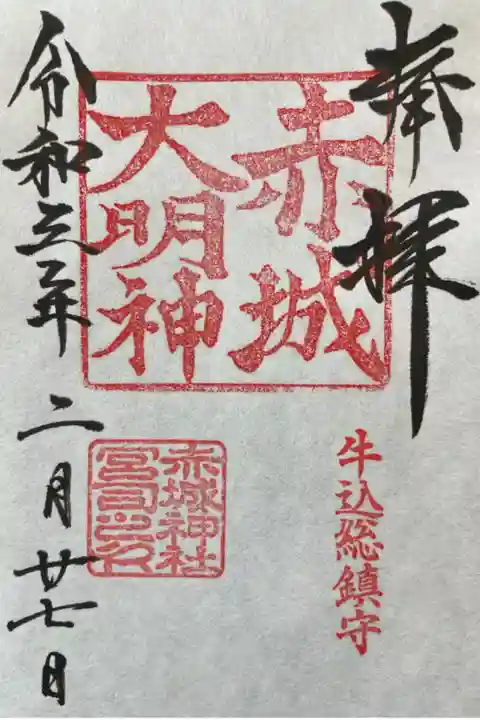 奉拝
赤城
大明神
牛込総鎮守
赤城神社
宮司之印
令和三年二月廿七日